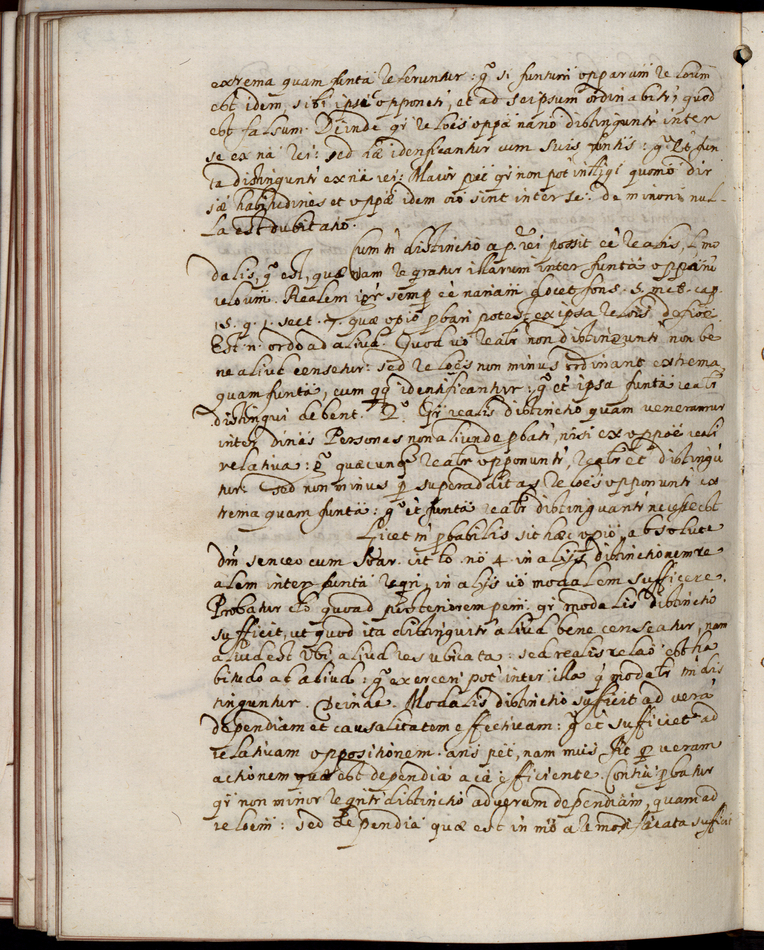 extrema quam funta referuntur: gͦ si funtum opparum reloum
est idem, sibi ipsi opponetr, et ad seipsum ordinabitr, quod
est falsum. Deinde qr reloēs oppae nano distinguntr inter
se ex nā rei: sed iāe idenficantur cum suis funtis: gͦ et fun
ta distinguntr ex nā rei: Maior pet qr non pot intligi quomo
habitudines et oppāe idem oīo sint inter se: de minori nul-
la est dubitatio.
Cum tn distinctio a p. rei possit eē realis, l mo
dalis, gͦ est, quae nam reqratur illarum inter funta oppānū
reloum. Realem semp eē nariam docet fons. 5. met. cap.
15. q. 1. sect. 7. quae opio pbari potest ex ipsa relois defioē
Est n. ordo ad aliud. Quod vͦ realr non distinguntr non be
ne aliud censetur: sed reloēs non minus ordinant extrema
quam funta, cum qͥ identificantur: gͦ et ipsa funta realr
distingui debent. 2ͦ. Qr realis distinctio quam veneramur
inter dinas Personas non aliunde pbatr, nisi ex oppoē reali
relativa: gͦ quaecunq realr opponuntr, realr et distingū
tur. sed non minus p superadditas reloēs opponuntr ex
trema quam funta: gͦ et funta realr distinguantr necesse est
Licet tn pbabilis sit haec opio, absolute
dm senceo cum Soar. cit to. nō 4. in alijs distinctionem re
alem inter funta reqri, in alijs vͦ modalem sufficere.
Probatur clo quoad posteriorem pem: qr modalis distinctio
sufficit, ut quod ita distinguitr aliud bene censeatur, nam
aliud est ubi, aliud res ubicata: sed realis relaō est ha
bitudo ad aliud: gͦ exerceri pot inter illa q modalr tm dis
tinguntur. Deinde. Modalis distinctio sufficit ad verā
dependiam et causalitatem effectivam: gͦ et sufficiet ad
relativam oppositionem. ans pet, nam fit p veram
actionem quae est dependiā a cā efficiente. Contia pbatur
qr non minor reqritr distinctio ad veram dependiam, quam ad
reloem: sed dependiā quae est in mo a re modificata sufficit